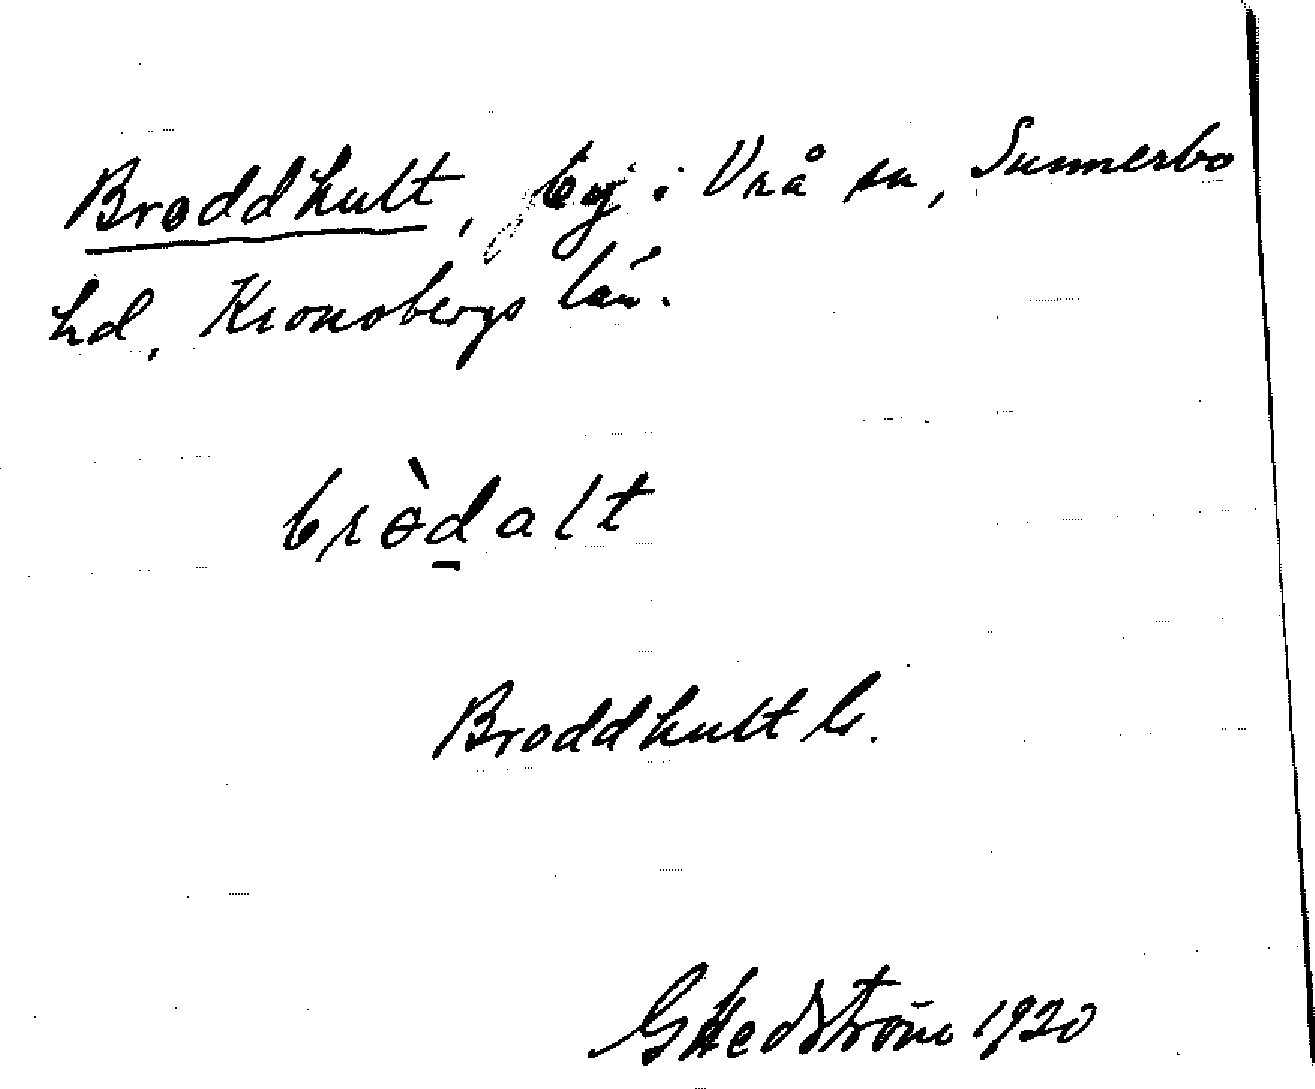 Broddhult, by i Vrå sn, Sunnerbo
hd, Kronobergs län.
bròd̲alt
Broddhult b.
G Hedström 1920